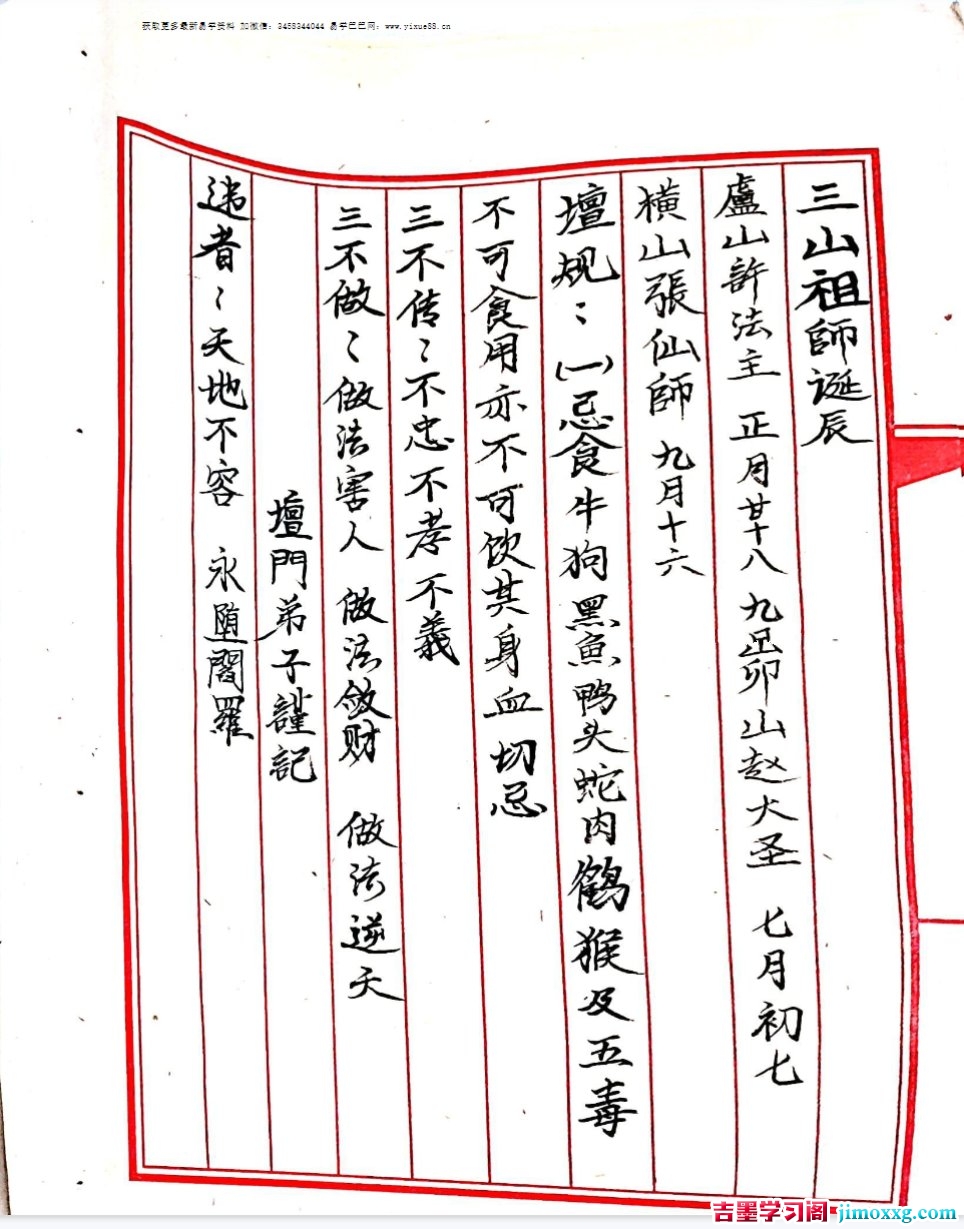 获取更多最新易学资料 加微信：3458344044 易学巴巴网：www.yixue88.cn
三山祖師誕辰
盧山許法主 正月廿十八 九足卯山赵大圣 七月初七
橫山張仙師 九月十六
壇规：(一)忌食牛狗黑魚鸭头蛇肉鶴猴及五毒
不可食用亦不可饮其身血切忌
三不传：不忠不孝不義
三不做：做法害人 做法敛财 做法逆天
壇門弟子謹記
违者：天地不容 永堕閻羅
吉墨学习阁 jimoxxg.com